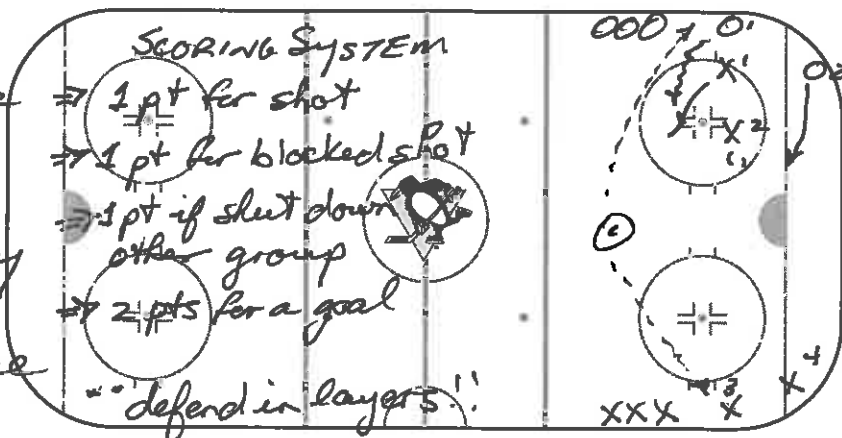 SCORING SYSTEM
⇒ 1 pt for shot
⇒ 1 pt for blocked shot
⇒ 1 pt if shut down
other group
⇒ 2 pts for a goal
** defend in layers!!
OOO O1
X1
O2
X2
C
3
X4
XXX X